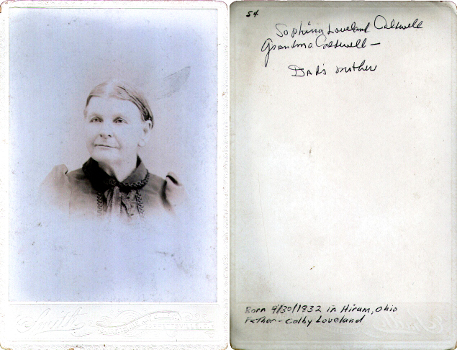 54
Sophina Loveland Caldwell
Grandma Caldwell —
Dad's mother
Born 9/30/1832 in Hiram, Ohio
Father - Colby Loveland